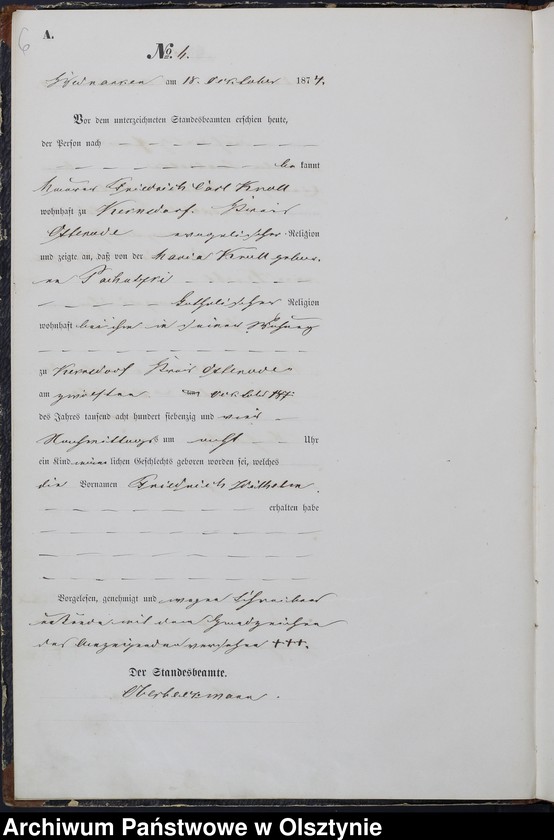 6
A.
No. 4.
am 18. October 1874.
Vor dem unterzeichneten Standesbeamten erschien heute,
der Person nach
bekannt
Maurer Friedrich Carl Kroll
wohnhaft zu Kernsdorf. Kreis
Osterode evangelischer Religion
und zeigte an, daß von der Maria Kroll gebor-
katholischer Religion
wohnhaft bei ihm in seiner Wohnung
zu Kernsdorf Kreis Osterode
am zwölften October
des Jahres tausend acht hundert siebenzig und vier
Nachmittags um acht Uhr
ein Kind männlichen Geschlechts geboren worden sei, welches
die Vornamen Friedrich Wilhelm
erhalten habe
Vorgelesen, genehmigt und wegen Schreibens
unkunde mit dem Handzeichen
des Anzeigenden versehen +++.
Der Standesbeamte.
Archiwum Państwowe w Olsztynie